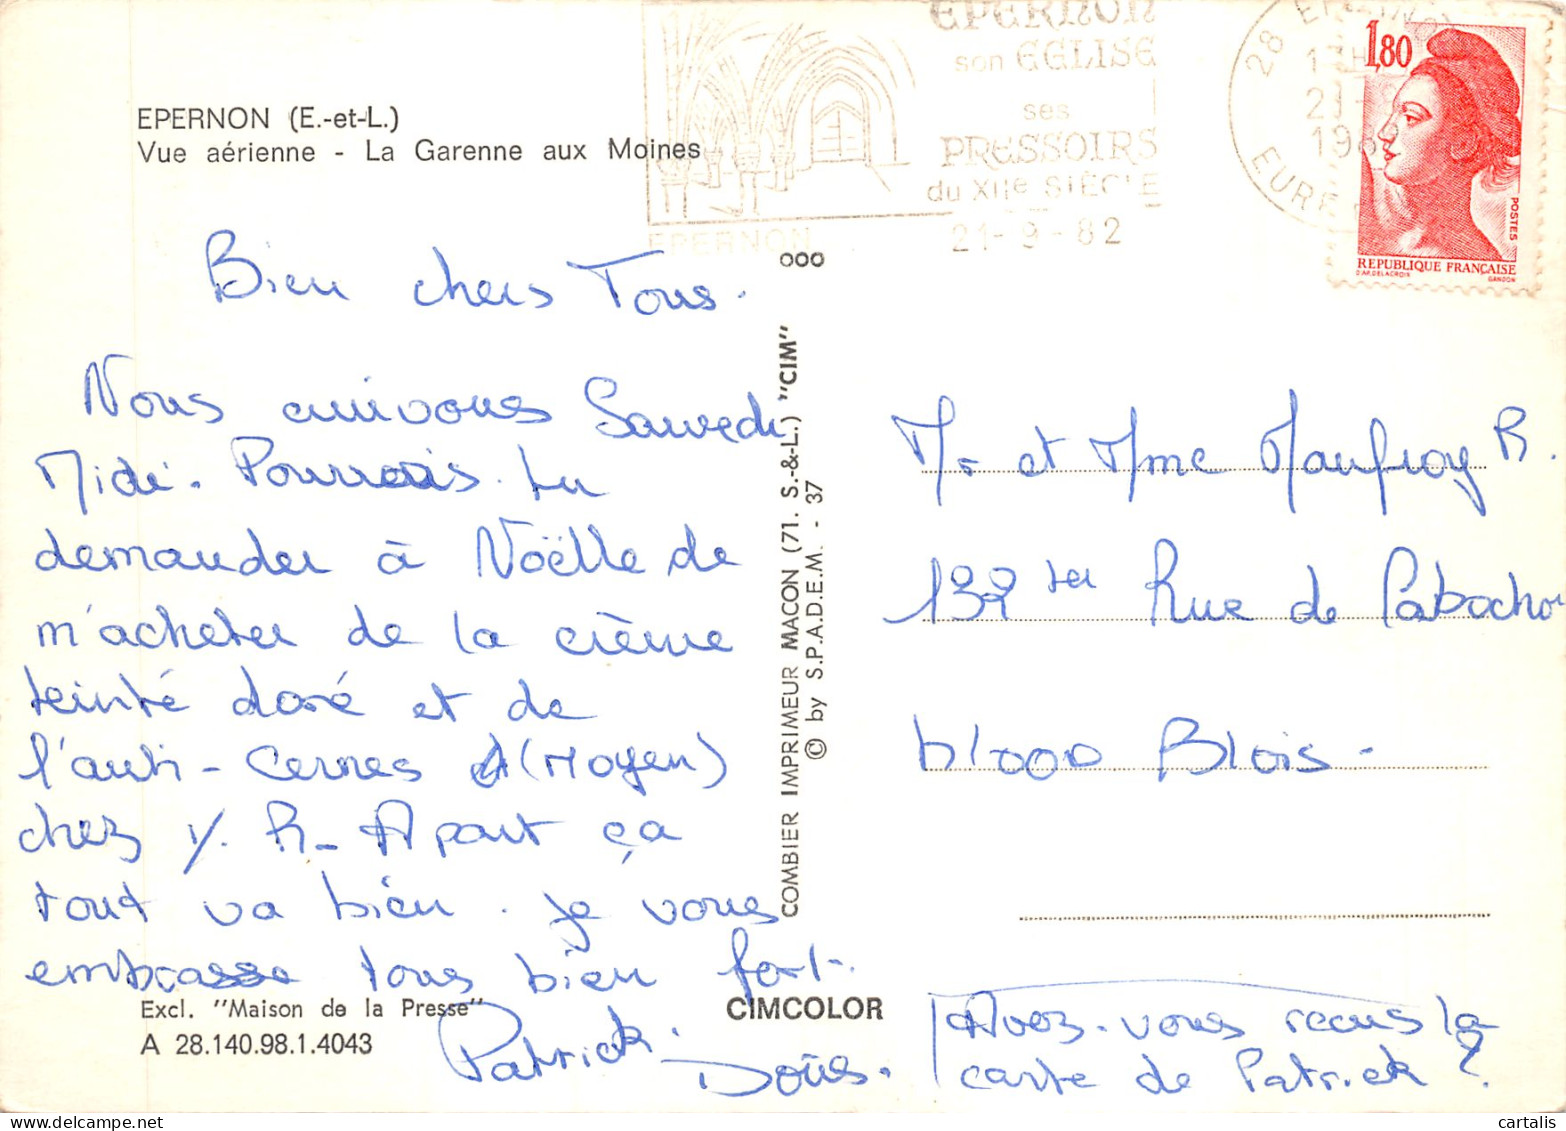 EPERNON (E.-et-L.)
Vue aérienne - La Garenne aux Moines
EPERNON
son EGLISE
ses
PRESSOIRS
du XIIe SIÈCLE
EPERNON
21-9-82
28
13H
21-
1982
EURE
1,80
POSTES
REPUBLIQUE FRANÇAISE
D'AP. DELACROIX
GANDON
Bien chers Tous.
Nous arrivons Samedi
Midi. Pourrais tu
demander à Noëlle de
m'acheter de la crème
teinté doré et de
l'anti-cernes (Moyen)
chez Y. R- A part ça
tout va bien. je vous
embrasse tous bien fort.
Patrick.
COMBIER IMPRIMEUR MACON (71. S.-&-L.) "CIM"
© by S.P.A.D.E.M. - 37
Mr et Mme Maufroy R.
132 ter Rue de Cabochon
41000 Blois-
Excl. "Maison de la Presse"
A 28.140.98.1.4043
CIMCOLOR
Avez-vous recus la
carte de Patrick ?
cartalis
delcampe.net